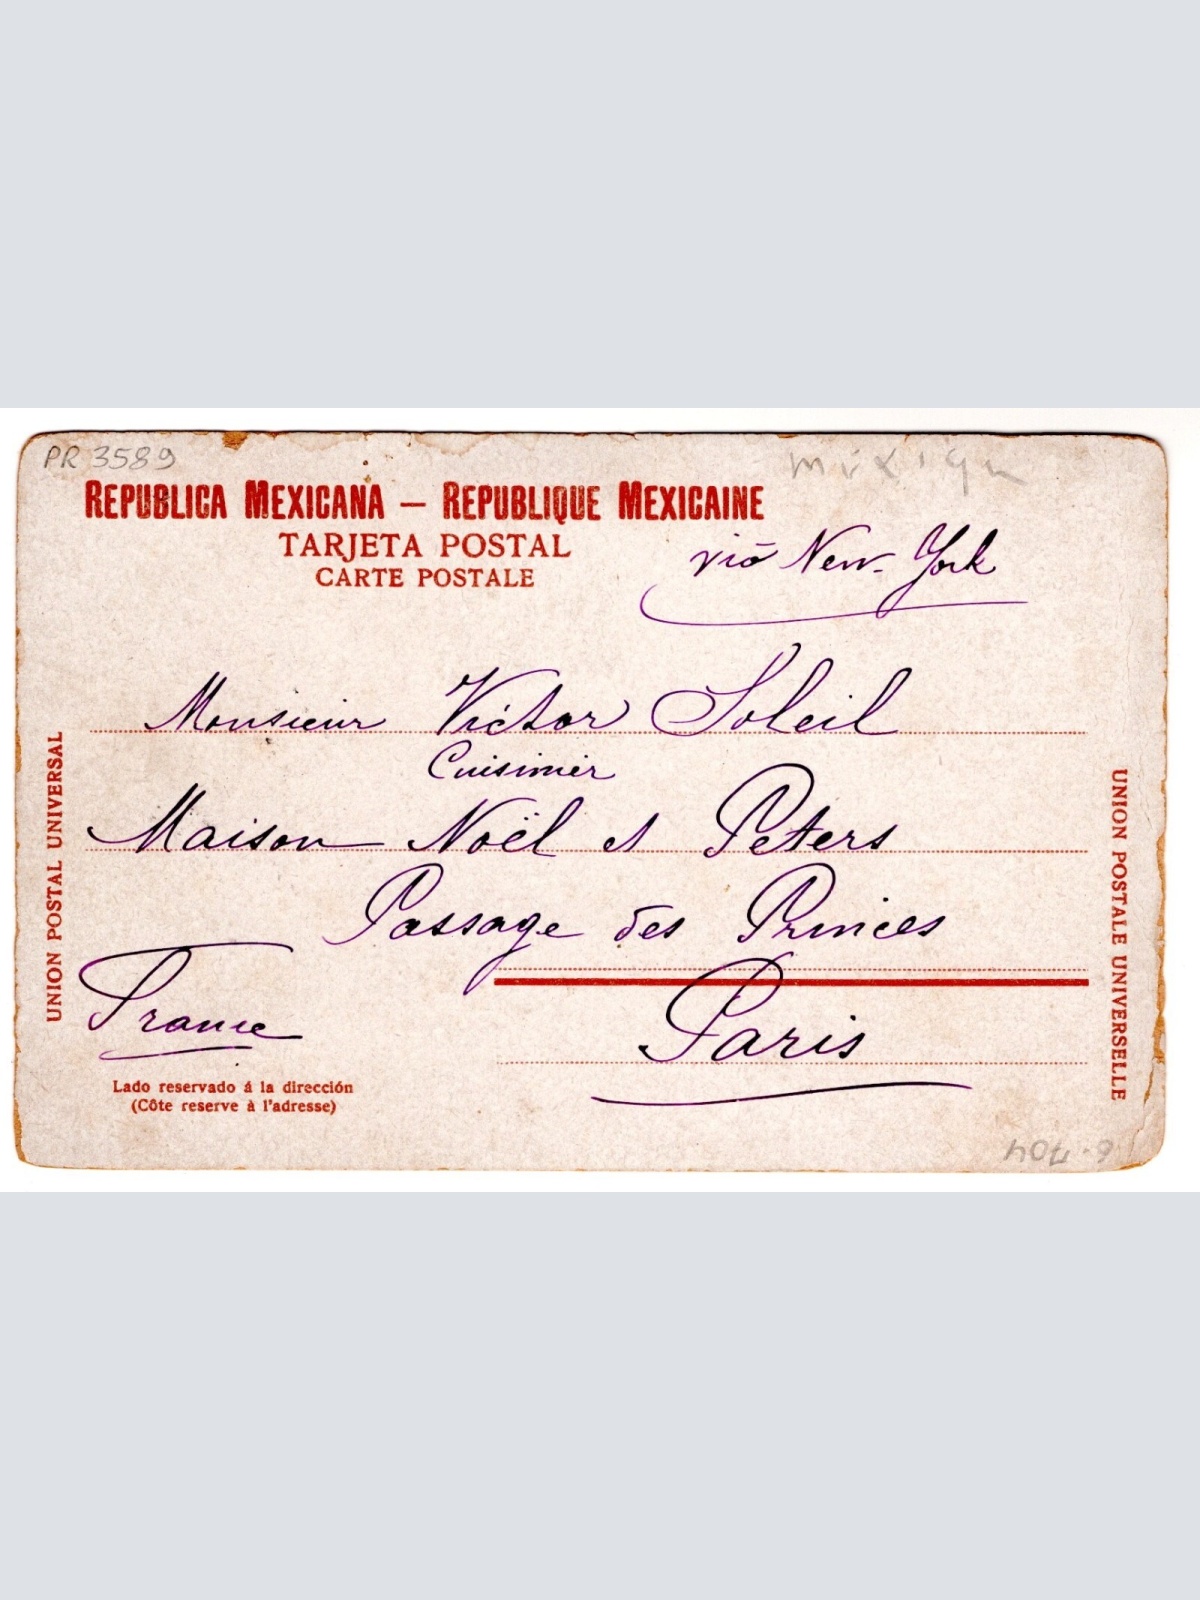 PR 3589
REPUBLICA MEXICANA — REPUBLIQUE MEXICAINE
TARJETA POSTAL
CARTE POSTALE
via New-York
Monsieur Victor Soleil
Cuisinier
Maison Noël et Peters
Passage des Princes
France
Paris
UNION POSTAL UNIVERSAL
UNION POSTALE UNIVERSELLE
Lado reservado á la dirección
(Côte reserve à l'adresse)